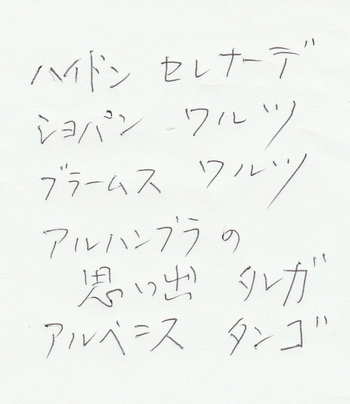 ハイドン セレナーデ
ショパン ワルツ
ブラームス ワルツ
アルハンブラの
思い出 タレガ
アルベニス タンゴ